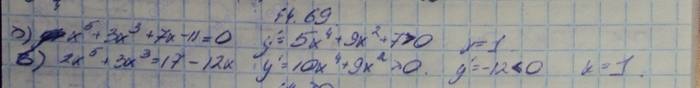 14.69
а) x⁵+3x³+7x-11=0 y'=5x⁴+9x²+7>0 x=1
б) 2x⁵+3x³=17-12x y'=10x⁴+9x²>0. y'=-12<0 x=1.